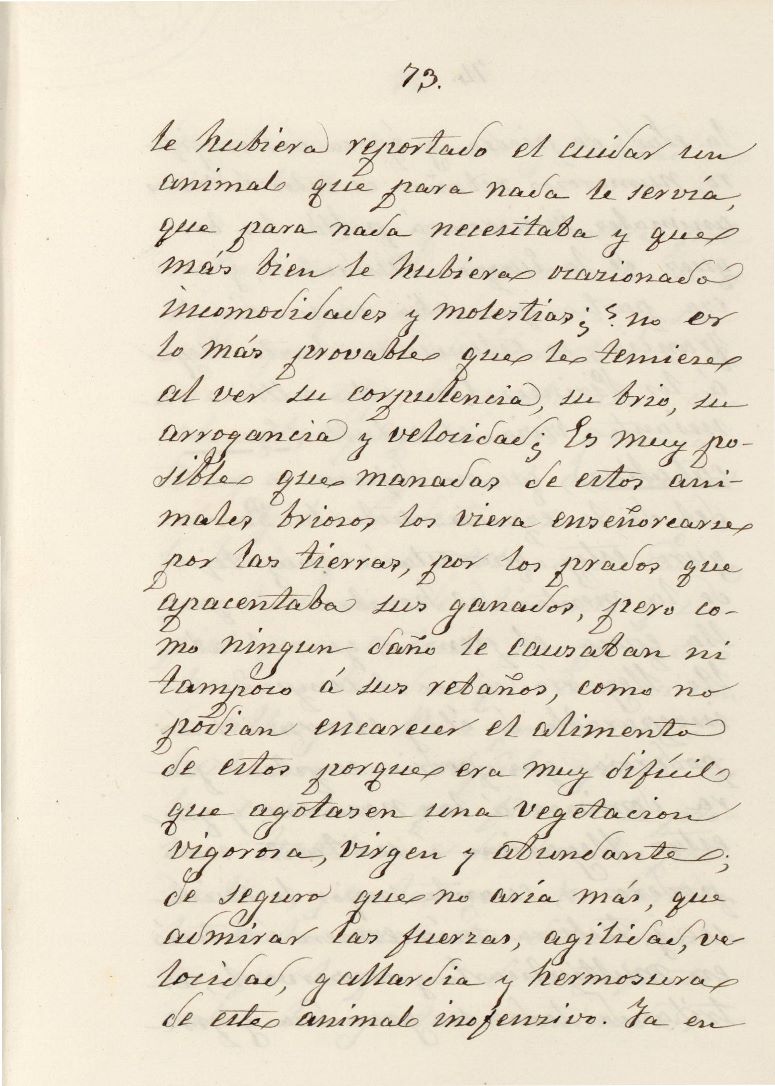 73.
le hubiera reportado el cuidar un
animal que para nada le servía,
que para nada necesitaba y que
más bien le hubiera ocazionado
incomodidades y molestias; ¿no es
lo más provable que le temiese
al ver su corpulencia, su brio, su
arrogancia y velocidad; Es muy po-
sible que manadas de estos ani-
males briosos los viera enseñorearse
por las tierras, por los prados que
apacentaba sus ganados, pero co-
mo ningun daño le causaban ni
tampoco á sus rebaños, como no
podian encarecer el alimento
de estos porque era muy difícil
que agotasen una vegetacion
vigorosa, virgen y abundante;
de seguro que no aría más, que
admirar las fuerzas, agilidad, ve-
locidad, gallardia y hermosura
de este animal inofenzivo. Ya en